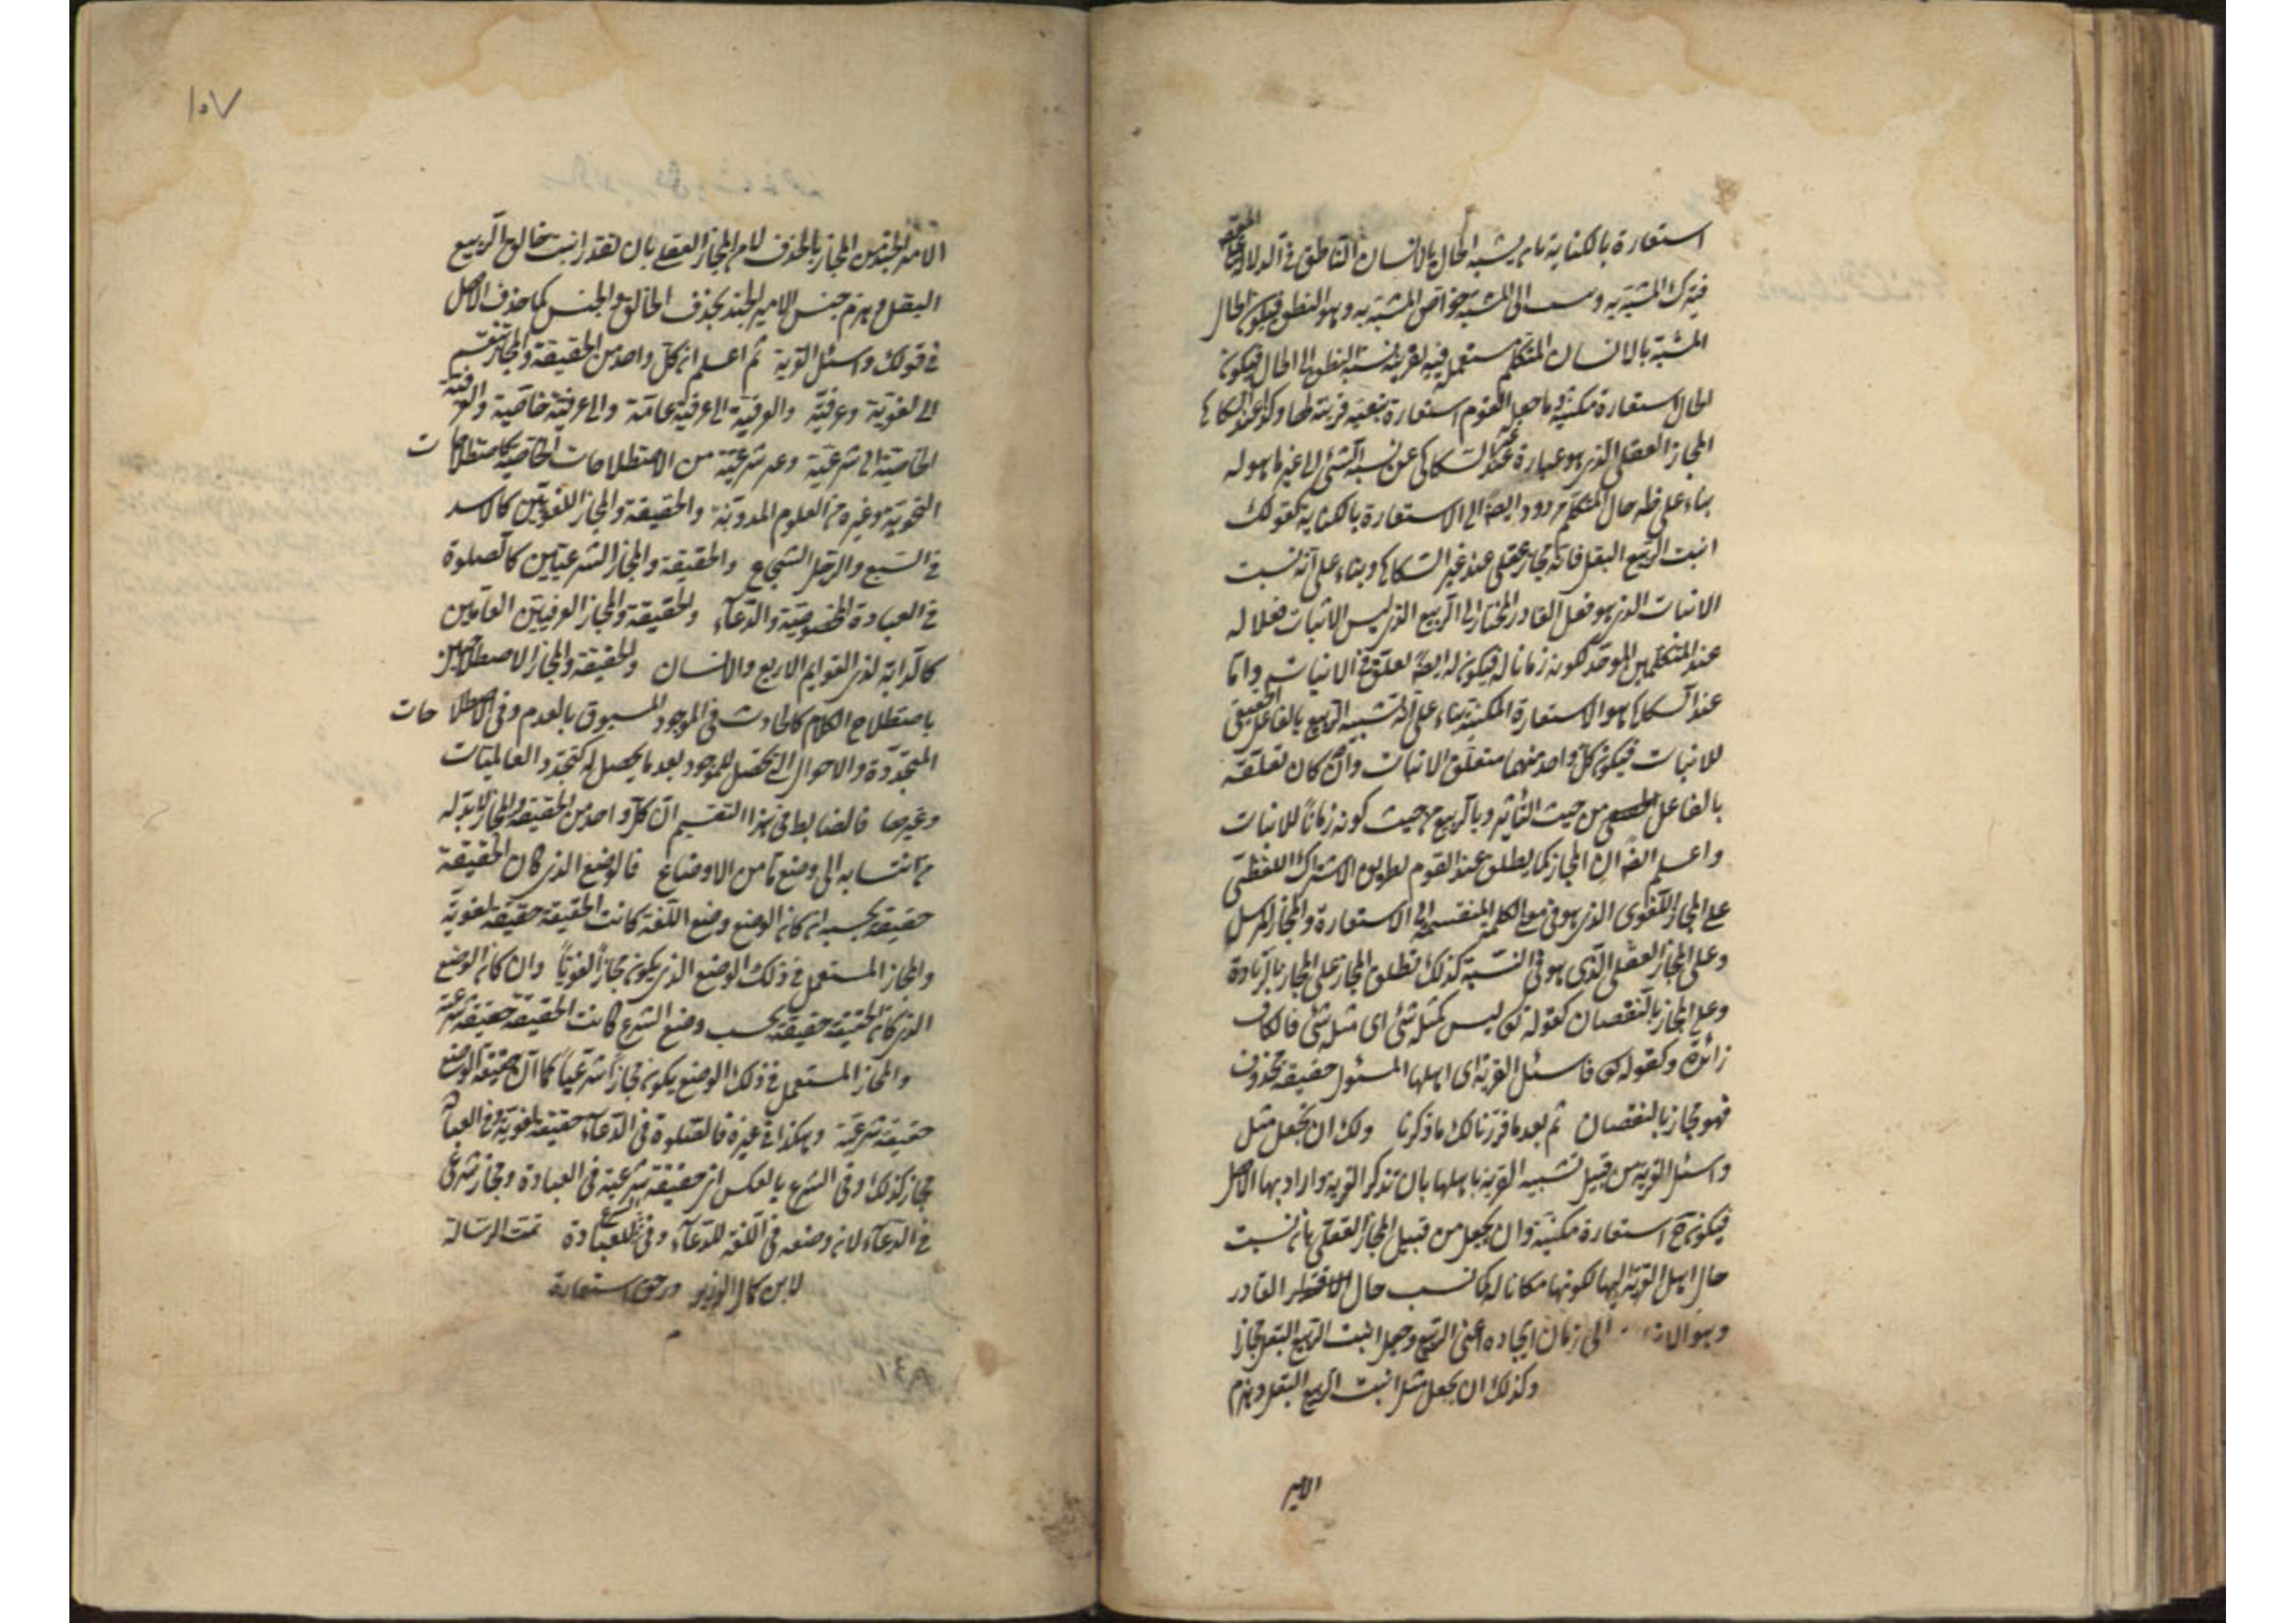 استعارة بالكناية بان يشبه الحال بالانسان الناطق في الدلالة
فيترك المشبه به وينسب الى المشبه خواص المشبه به وهو النطق فيكون الحال
المشبه بالانسان المتكلم مستعمل فيه بقرينة نسبة النطق الى الحال فيكون
الحال استعارة مكنية وما جعله القوم استعارة تبعية قرينة لها وكذا عند السكاكى
المجاز العقلى الذى هو عبارة عند غير السكاكى عن نسبة الشئ الى غير ما هو له
بناء على ظاهر حال المتكلم مردود ايضا الى الاستعارة بالكناية كقولك
انبت الربيع البقل فانه مجاز عقلى عند غير السكاكى وبناء على انه نسبت
الانبات الذى هو فعل القادر المختار الى الربيع الذى ليس الانبات فعلا له
عند المتكلمين الموحد لكونه زمانا له فيكون له ايضا تعلق في الانبات واما
عند السكاكى هو الاستعارة المكنية بناء على انه تشبيه الربيع بالفاعل الحقيقى
للانبات فيكون كل واحد منهما متعلق الانبات وان كان تعلقه
بالفاعل من حيث التأثير وبالربيع من حيث كونه زمانا للانبات
واعلم ايضا ان المجاز كما يطلق عند القوم بطريق الاشتراك اللفظى
على المجاز اللغوى الذى هو في معنى الكلمة المنقسم الى الاستعارة والمجاز المرسل
وعلى المجاز العقلى الذى هو في النسبة كذلك يطلق المجاز على المجاز بالزيادة
وعلى المجاز بالنقصان كقوله تعالى ليس كمثله شئ اى مثله شئ فالكاف
زائدة وكقوله تعالى فاسئل القرية اى اهلها المسئول حقيقة محذوف
فهو مجاز بالنقصان ثم بعد ما قررنا لك ما ذكرنا ولك ان تجعل مثل
واسئل القرية من قبيل تشبيه القرية باهلها بان تذكر القرية واراد بها الاهل
فيكون ح استعارة مكنية وان يجعل من قبيل المجاز العقلى بان نسبت
حال اهل القرية اليها لكونها مكانا له كما نسب حال القادر
وهو الى زمان ايجاده اعنى الربيع وجعل انبت الربيع البقل مجازا
وكذلك ان يجعل مثل انبت الربيع البقل وهزم
الامير
١٠٧
الامير الجند من المجاز بالحذف لا من المجاز العقلى بان تقدر انبت خالق الربيع
البقل وهزم جنس الامير الجند بحذف الخالق والجنس كما حذف الاهل
في قولك واسئل القرية ثم اعلم ان كل واحد من الحقيقة والمجاز تنقسم
الى لغوية وعرفية والعرفية الى عرفية عامة والى عرفية خاصية والعرفية
الخاصية الى شرعية وغير شرعية من الاصطلاحات الخاصية كاصطلاحات
النحوية وغيره من العلوم المدونة والحقيقة والمجاز اللغويين كالاسد
في السبع والرجل الشجاع والحقيقة والمجاز الشرعيين كالصلوة
في العبادة المخصوصة والدعاء والحقيقة والمجاز العرفيين العامين
كالدابة لذى القوايم الاربع والانسان والحقيقة والمجاز الاصطلاحيين
باصطلاح الكلام كالحادث في الموجود المسبوق بالعدم وفى الاصطلاحات
المتجددة والاحوال التى تحصل للموجود بعد ما يحصل له كتجدد العالميات
وغيرها فالضابط في هذا التقسيم ان كل واحد من الحقيقة والمجاز لابد له
من انتسابه الى وضع ما من الاوضاع فالوضع الذى كان الحقيقة
حقيقة بحسبه ان كان الوضع وضع اللغة كانت الحقيقة حقيقة لغوية
والمجاز المستعمل في ذلك الوضع الذى يكون مجازا لغويا وان كان الوضع
الذى كان الحقيقة حقيقة بحسب وضع الشرع كانت الحقيقة حقيقة شرعية
والمجاز المستعمل في ذلك الوضع يكون مجازا شرعيا كما ان حقيقة الوضع
حقيقة شرعية وهكذا في غيره فالصلوة في الدعاء حقيقة لغوية وفى العبادة
مجاز كذلك وفى الشرع بالعكس اى حقيقة شرعية في العبادة ومجاز شرعى
في الدعاء لانه وضعه في اللغة للدعاء وفى الشرع للعبادة تمت الرسالة
لابن كمال الوزير در حق استعارة
م